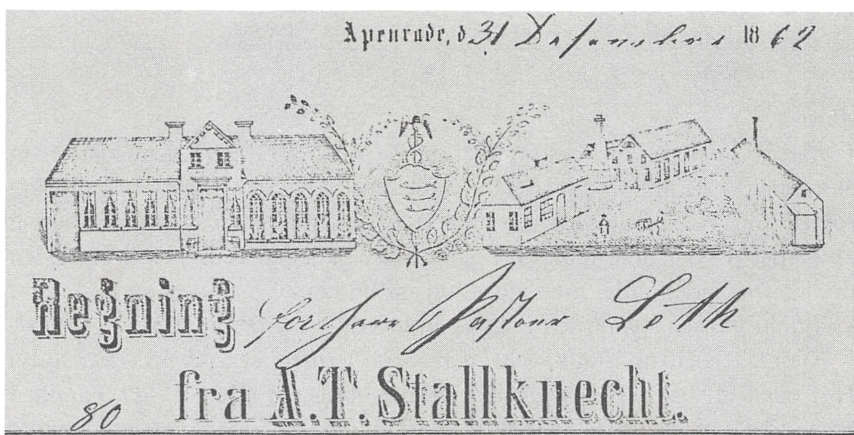 Apenrade, d. 31 Desember 1862
Regning for Herr Pastour Loth
fra A.T. Stallknecht.
80